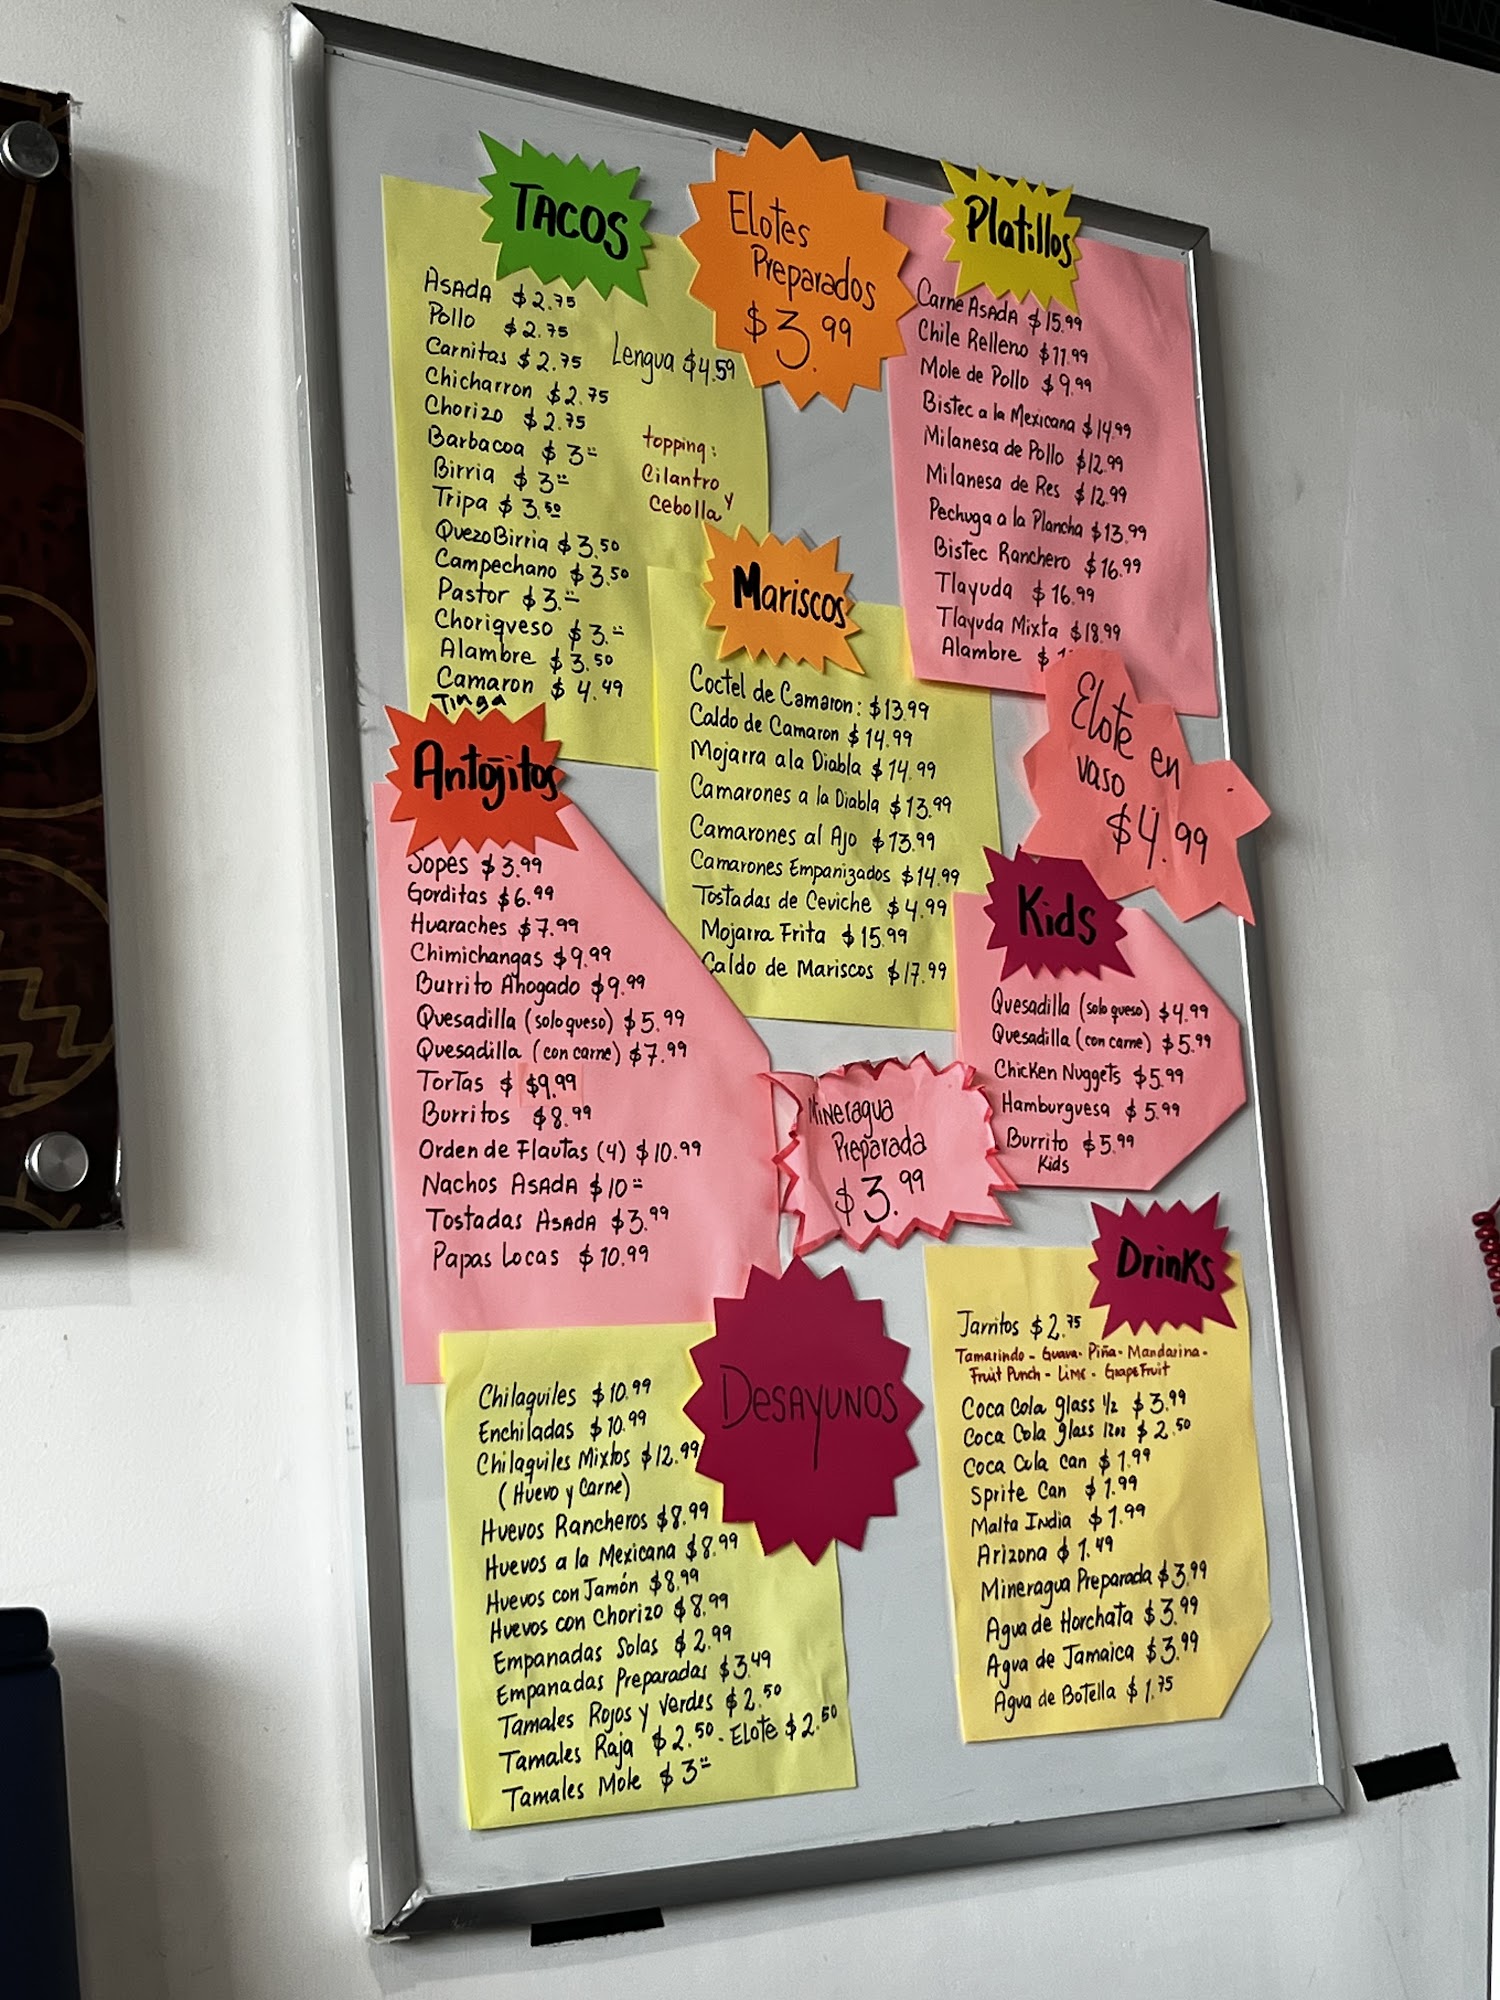 TACOS
ASADA $2.75
Pollo $2.75
Carnitas $2.75
Chicharron $2.75
Chorizo $2.75
Barbacoa $3
Birria $3
Tripa $3.50
QuezoBirria $3.50
Campechano $3.50
Pastor $3.
Choriqveso $3.
Alambre $3.50
Camaron $4.49
Tinga
Lengua $4.59
topping:
Cilantro y
Cebolla
Elotes
Preparados
$3.99
Platillos
Carne ASADA $15.99
Chile Relleno $11.99
Mole de Pollo $9.99
Bistec a la Mexicana $14.99
Milanesa de Pollo $12.99
Milanesa de Res $12.99
Pechuga a la Plancha $13.99
Bistec Ranchero $16.99
Tlayuda $16.99
Tlayuda Mixta $18.99
Alambre $
Elote en
vaso
$4.99
Mariscos
Coctel de Camaron: $13.99
Caldo de Camaron $14.99
Mojarra ala Diabla $14.99
Camarones a la Diabla $13.99
Camarones al Ajo $13.99
Camarones Empanizados $14.99
Tostadas de Ceviche $4.99
Mojarra Frita $15.99
Caldo de Mariscos $17.99
Antojitos
Sopes $3.99
Gorditas $6.99
Huaraches $7.99
Chimichangas $9.99
Burrito Ahogado $9.99
Quesadilla (solo queso) $5.99
Quesadilla (con carne) $7.99
TorTas $ $9.99
Burritos $8.99
Orden de Flautas (4) $10.99
Nachos ASADA $10
Tostadas ASADA $3.99
Papas Locas $10.99
Kids
Quesadilla (solo queso) $4.99
Quesadilla (con carne) $5.99
Chicken Nuggets $5.99
Hamburguesa $5.99
Burrito $5.99
Kids
Mineragua
Preparada
$3.99
DESAYUNOS
Chilaquiles $10.99
Enchiladas $10.99
Chilaquiles Mixtos $12.99
(Huevo y Carne)
Huevos Rancheros $8.99
Huevos a la Mexicana $8.99
Huevos con Jamón $8.99
Huevos con Chorizo $8.99
Empanadas Solas $2.99
Empanadas Preparadas $3.49
Tamales Rojos y Verdes $2.50
Tamales Raja $2.50 - Elote $2.50
Tamales Mole $3
Drinks
Jarritos $2.75
Tamarindo - Guava - Piña - Mandarina -
Fruit Punch - Lime - GrapeFruit
Coca Cola glass 1/2 $3.99
Coca Cola glass 12oz $2.50
Coca Cola can $1.99
Sprite Can $1.99
Malta India $1.99
Arizona $1.49
Mineragua Preparada $3.99
Agua de Horchata $3.99
Agua de Jamaica $3.99
Agua de Botella $1.75